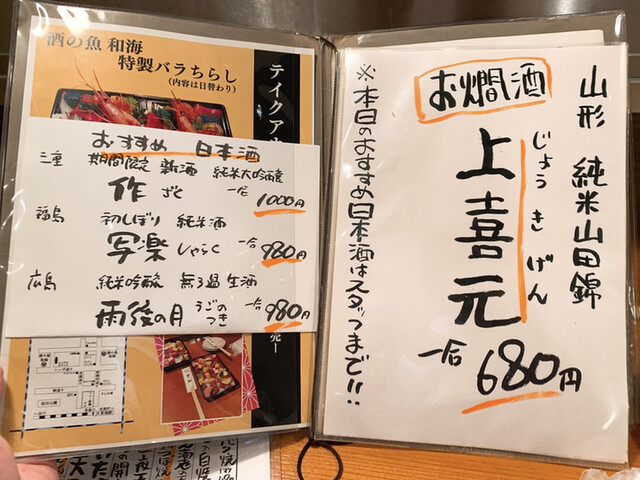 酒の魚 和海
特製バラちらし
(内容は日替わり)
テイクア
おすすめ 日本酒
三重 期間限定 新酒 純米大吟醸
作 ざく 一合 1000円
福島 初しぼり 純米酒
写楽 しゃらく 一合 980円
広島 純米吟醸 無ろ過 生酒
雨後の月 うごのつき 一合 980円
売
山形 純米山田錦
じょうきげん
お燗酒
上喜元
一合 680円
※本日のおすすめ日本酒はスタッフまで!!